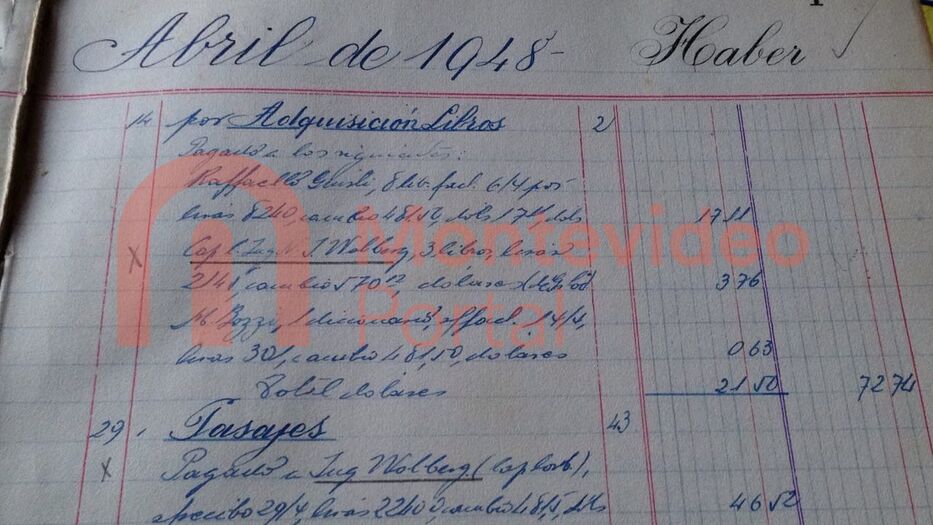 Abril de 1948 - Haber
14 por Adquisición Libros 2
Pagado a los siguientes:
Raffaello Giusti, 8 lib. fact. 6/4 por
liras 8240, cambio 481,50, dols 17 11 dols 17 11
X Cap. C. Ing. M. J. Wolberg, 3 libros, liras
2148, cambio 570 dolares 3 76
M. Bozzi, 1 dicionario, s/fact. 14/4,
liras 301, cambio 481,50, dolares 0 63
Total dolares 21 50 72 74
29 Pasajes 43
X Pagado a Ing Wolberg (Cap. Corb.),
recibo 29/4, liras 22400 cambio 481,5, dols 46 52
Montevideo
Portal